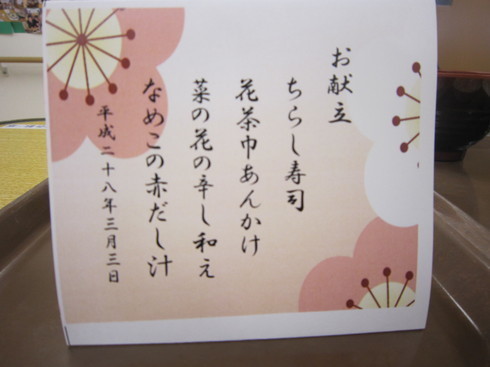 お献立
ちらし寿司
花茶巾あんかけ
菜の花の辛し和え
なめこの赤だし汁
平成二十八年三月三日